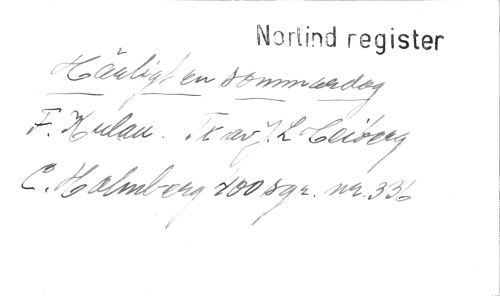 Norlind register
Härligt en sommardag
F. Kulau. Tx av J. L Heiberg
C. Holmberg 700 sgr. nr. 336